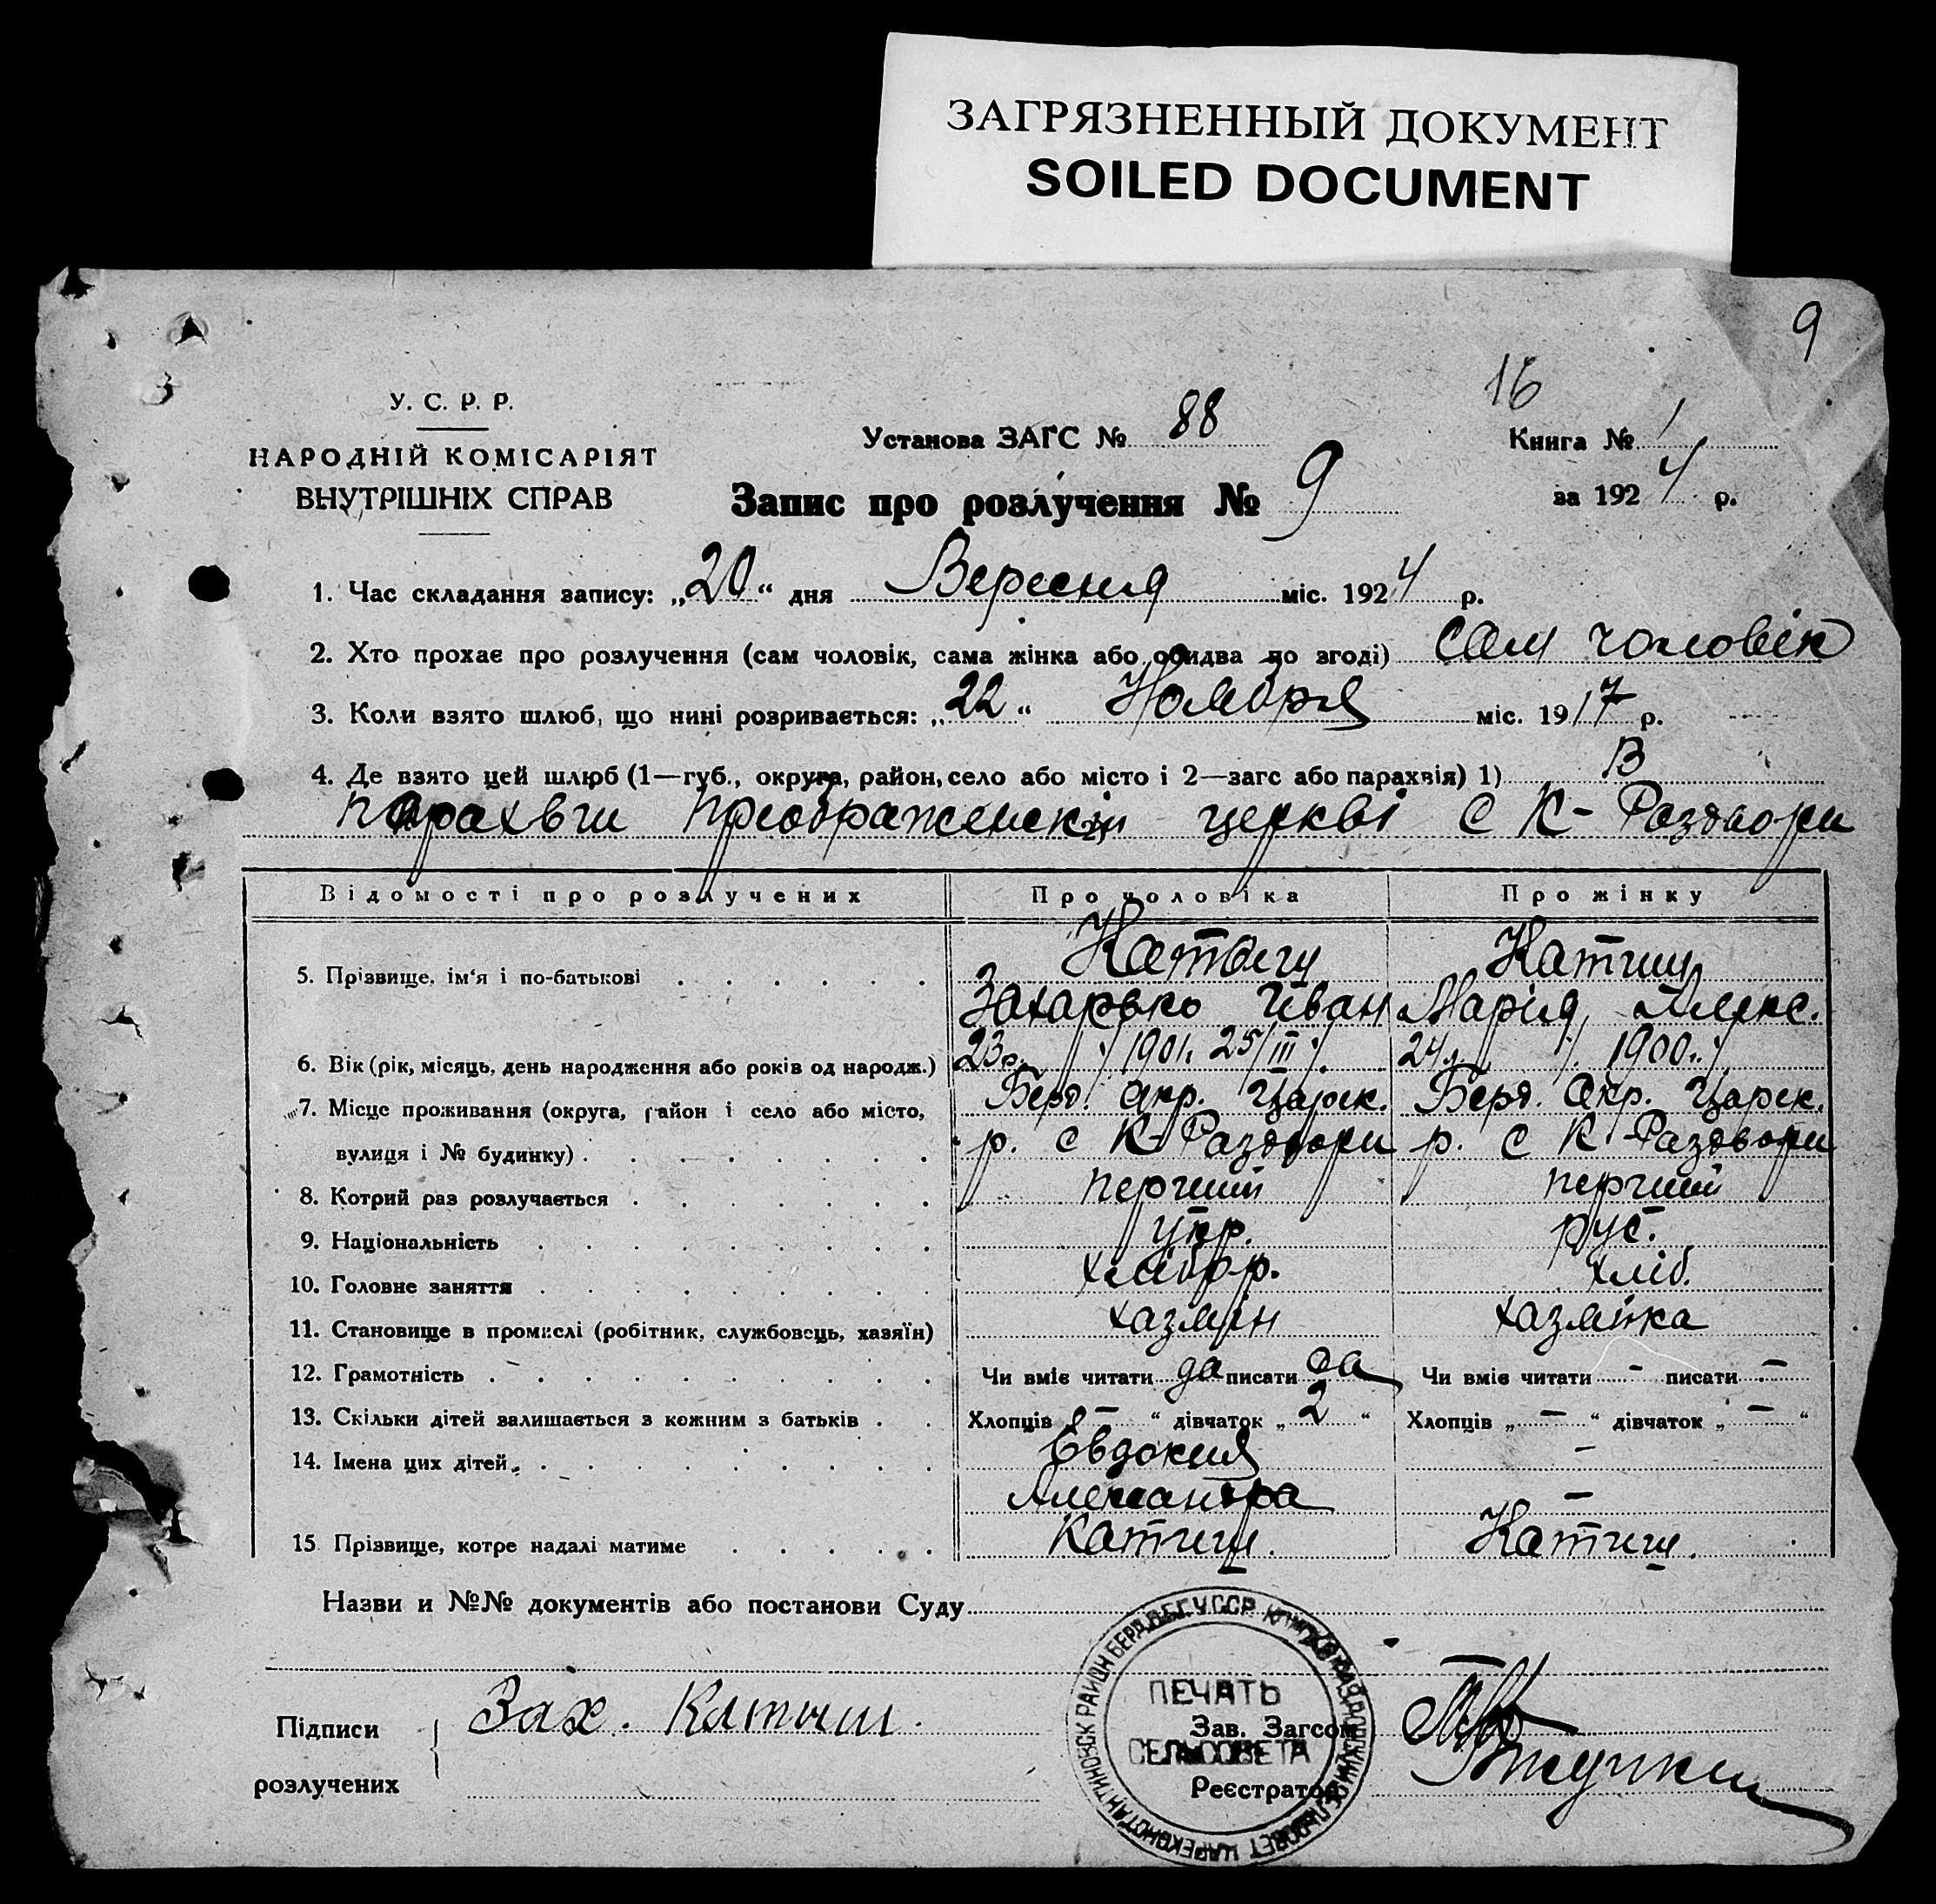 ЗАГРЯЗНЕННЫЙ ДОКУМЕНТ
SOILED DOCUMENT
9
16
У. С. Р. Р.
НАРОДНІЙ КОМІСАРІЯТ
ВНУТРІШНІХ СПРАВ
Установа ЗАГС № 88
Книга № 1
за 1924 р.
Запис про розлучення № 9
1. Час складання запису: „20“ дня Вересния міс. 1924 р.
2. Хто прохає про розлучення (сам чоловік, сама жінка або обидва по згоді) Сам чоловік
3. Коли взято шлюб, що нині розривається: „22“ Ноября міс. 1917 р.
4. Де взято цей шлюб (1—губ., округа, район, село або місто і 2—загс або парахвія) 1) В
парахвги преображенскій церкві с К-Раздори
Відомості про розлучених Про чоловіка Про жінку
5. Прізвище, ім‘я і по-батькові Катыш Катиш
Захарько Иван Марія Алекс.
6. Вік (рік, місяць, день народження або років од народж.) 23 р. 1901. 25/III 24 1900
7. Місце проживання (округа, район і село або місто, Берд. окр. Царек. Берд. Окр. Царек.
вулиця і № будинку) р. с К-Раздори р. с К-Раздори
8. Котрий раз розлучається перший перший
9. Національність укр. рус.
10. Головне заняття хлібор. хліб.
11. Становище в промислі (робітник, службовець, хазяїн) хазяін хазяйка
12. Грамотність Чи вміє читати да писати да Чи вміє читати – писати –
13. Скільки дітей залишається з кожним з батьків Хлопців „–“ дівчаток „2“ Хлопців „–“ дівчаток „–“
14. Імена цих дітей Евдокия –
Александра –
15 Прізвище, котре надалі матиме Катиш. Катиш.
Назви и №№ документів або постанови Суду
Підписи Зах. Катыш. Зав. Загсом
розлучених Реєстратор
ПЕЧАТЬ
СЕЛЬСОВЕТА